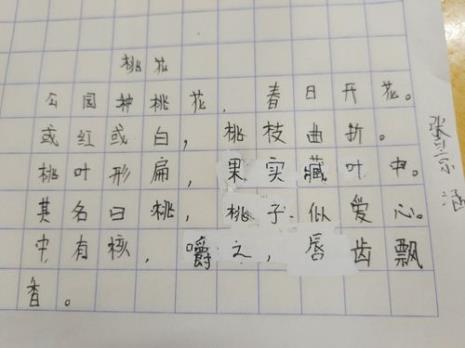 桃花
公园种桃花，春日开花。
或红或白，桃枝曲折。
桃叶形扁，果实藏叶中。
其名曰桃，桃子似爱心。
中有核，嚼之，唇齿飘
香。